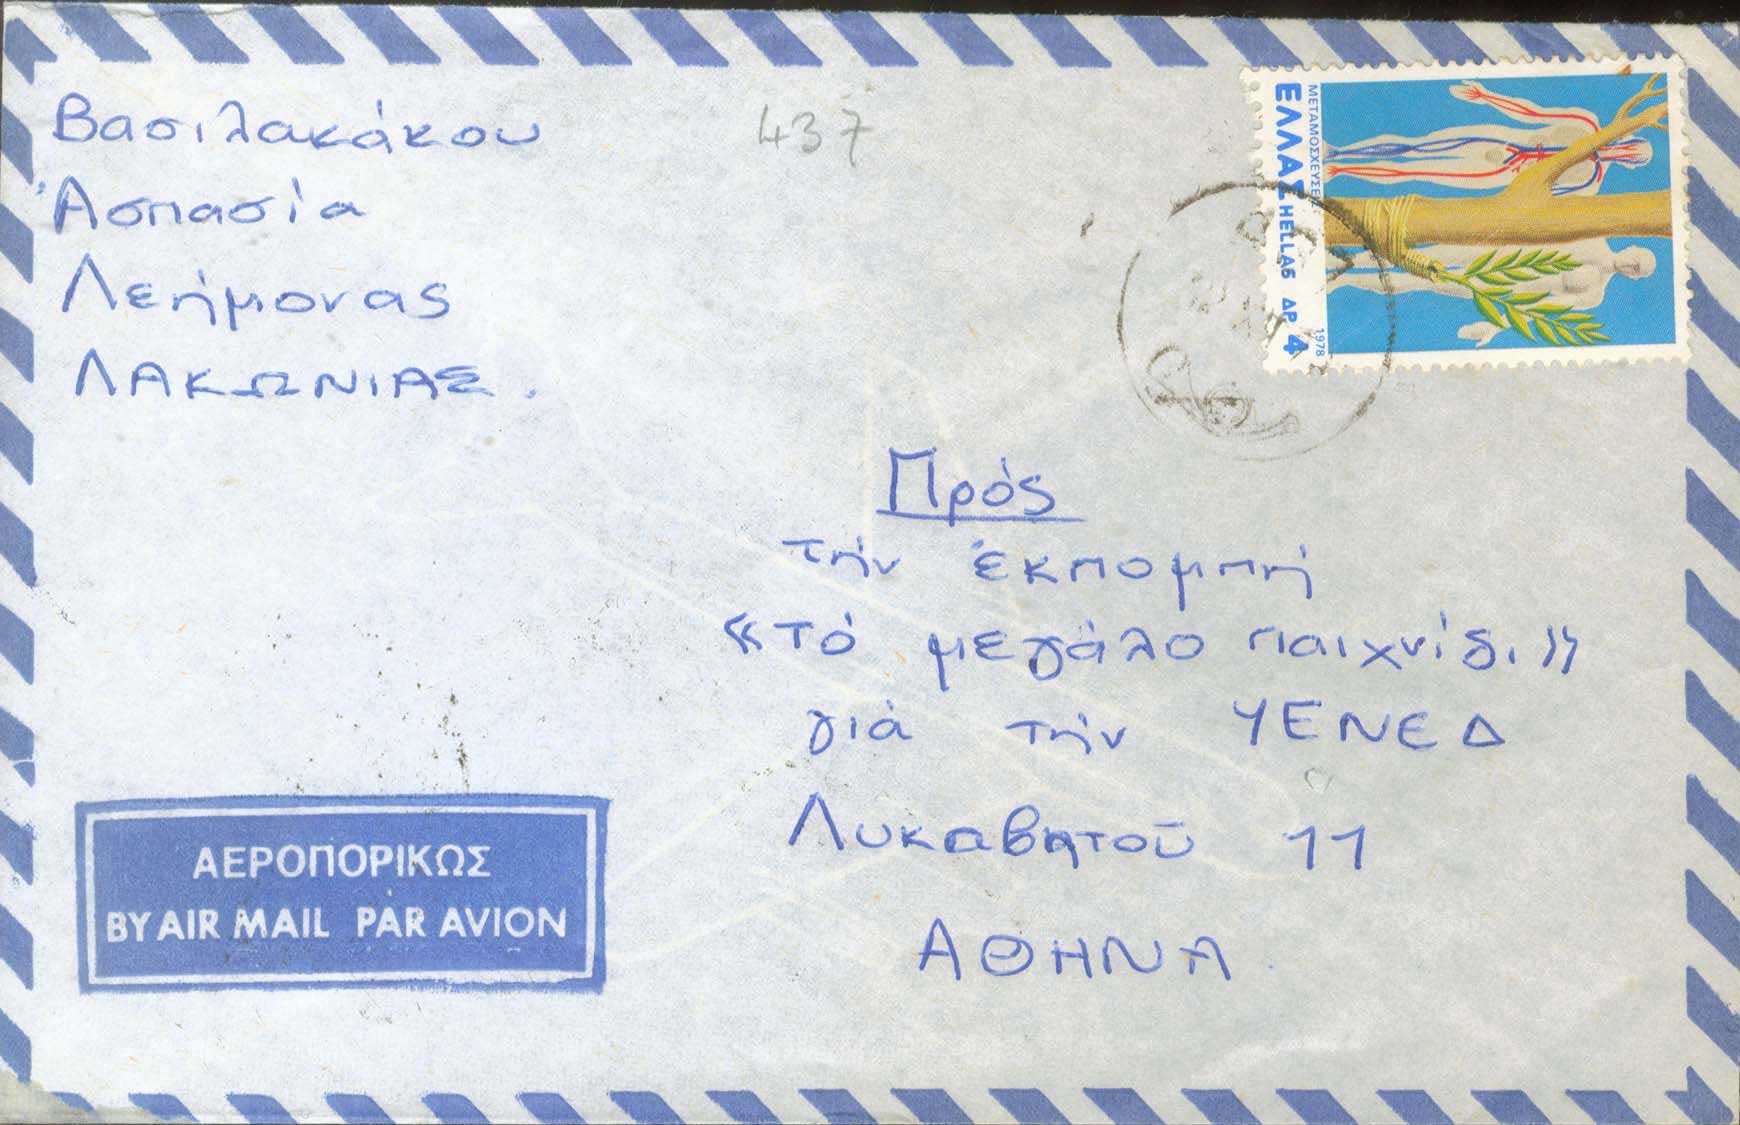 Βασιλακάκου
Ἀσπασία
Λεήμονας
ΛΑΚΩΝΙΑΣ.
437
ΜΕΤΑΜΟΣΧΕΥΣΕΙΣ
ΕΛΛΑΣ HELLAS ΔΡ 4
1978
Πρός
τήν ἐκπομπή
«τό μεγάλο παιχνίδι»
γιά τήν ΥΕΝΕΔ
Λυκαβητοῦ 11
ΑΘΗΝΑ.
ΑΕΡΟΠΟΡΙΚΩΣ
BY AIR MAIL PAR AVION